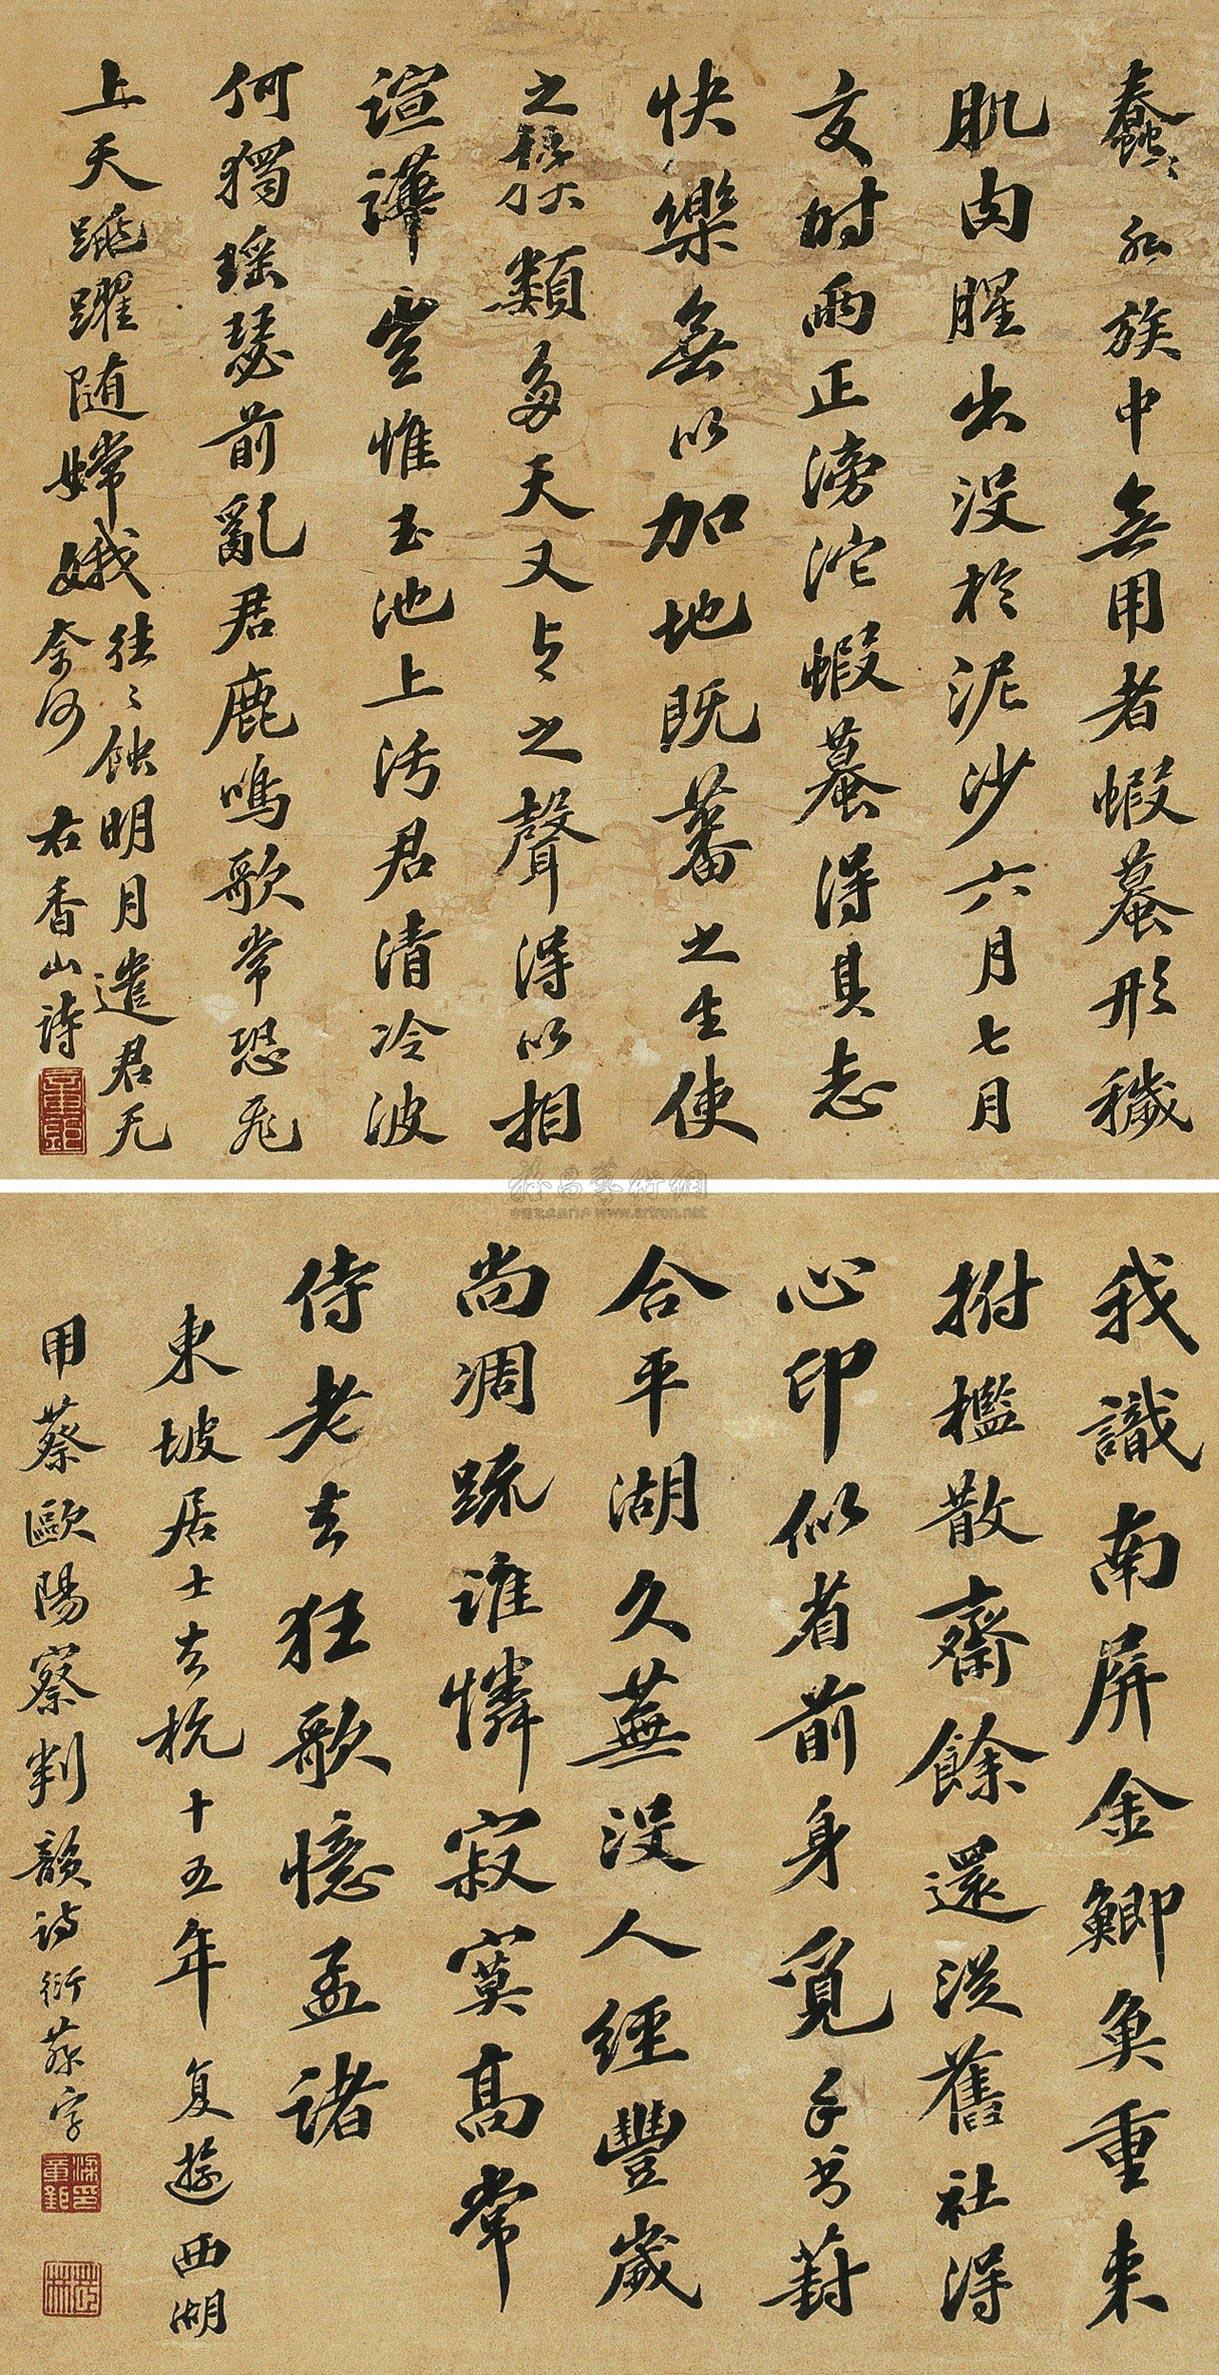 蠢〻水族中無用者蝦蟇形穢
肌肉腥出沒於泥沙六月七月
交時雨正滂沱蝦蟇得其志
快樂無以加地既蕃之生使
之族類多天又与之聲得以相
諠譁豈惟玉池上汚君清冷波
何獨瑤瑟前亂君鹿鳴歌常恐飛
上天跳躍随嫦娥往〻蝕明月遣君无
奈何 右香山詩
雅昌藝術網
www.artron.net
我識南屏金鯽魚重来
拊檻散齋餘還從舊社得
心印似省前身覓手书葑
合平湖久蕪没人經豐歲
尚凋疏誰憐寂寞高常
侍老去狂歌憶孟諸
東坡居士去杭十五年復遊西湖
用蔡歐陽察判韻詩衍蔡字